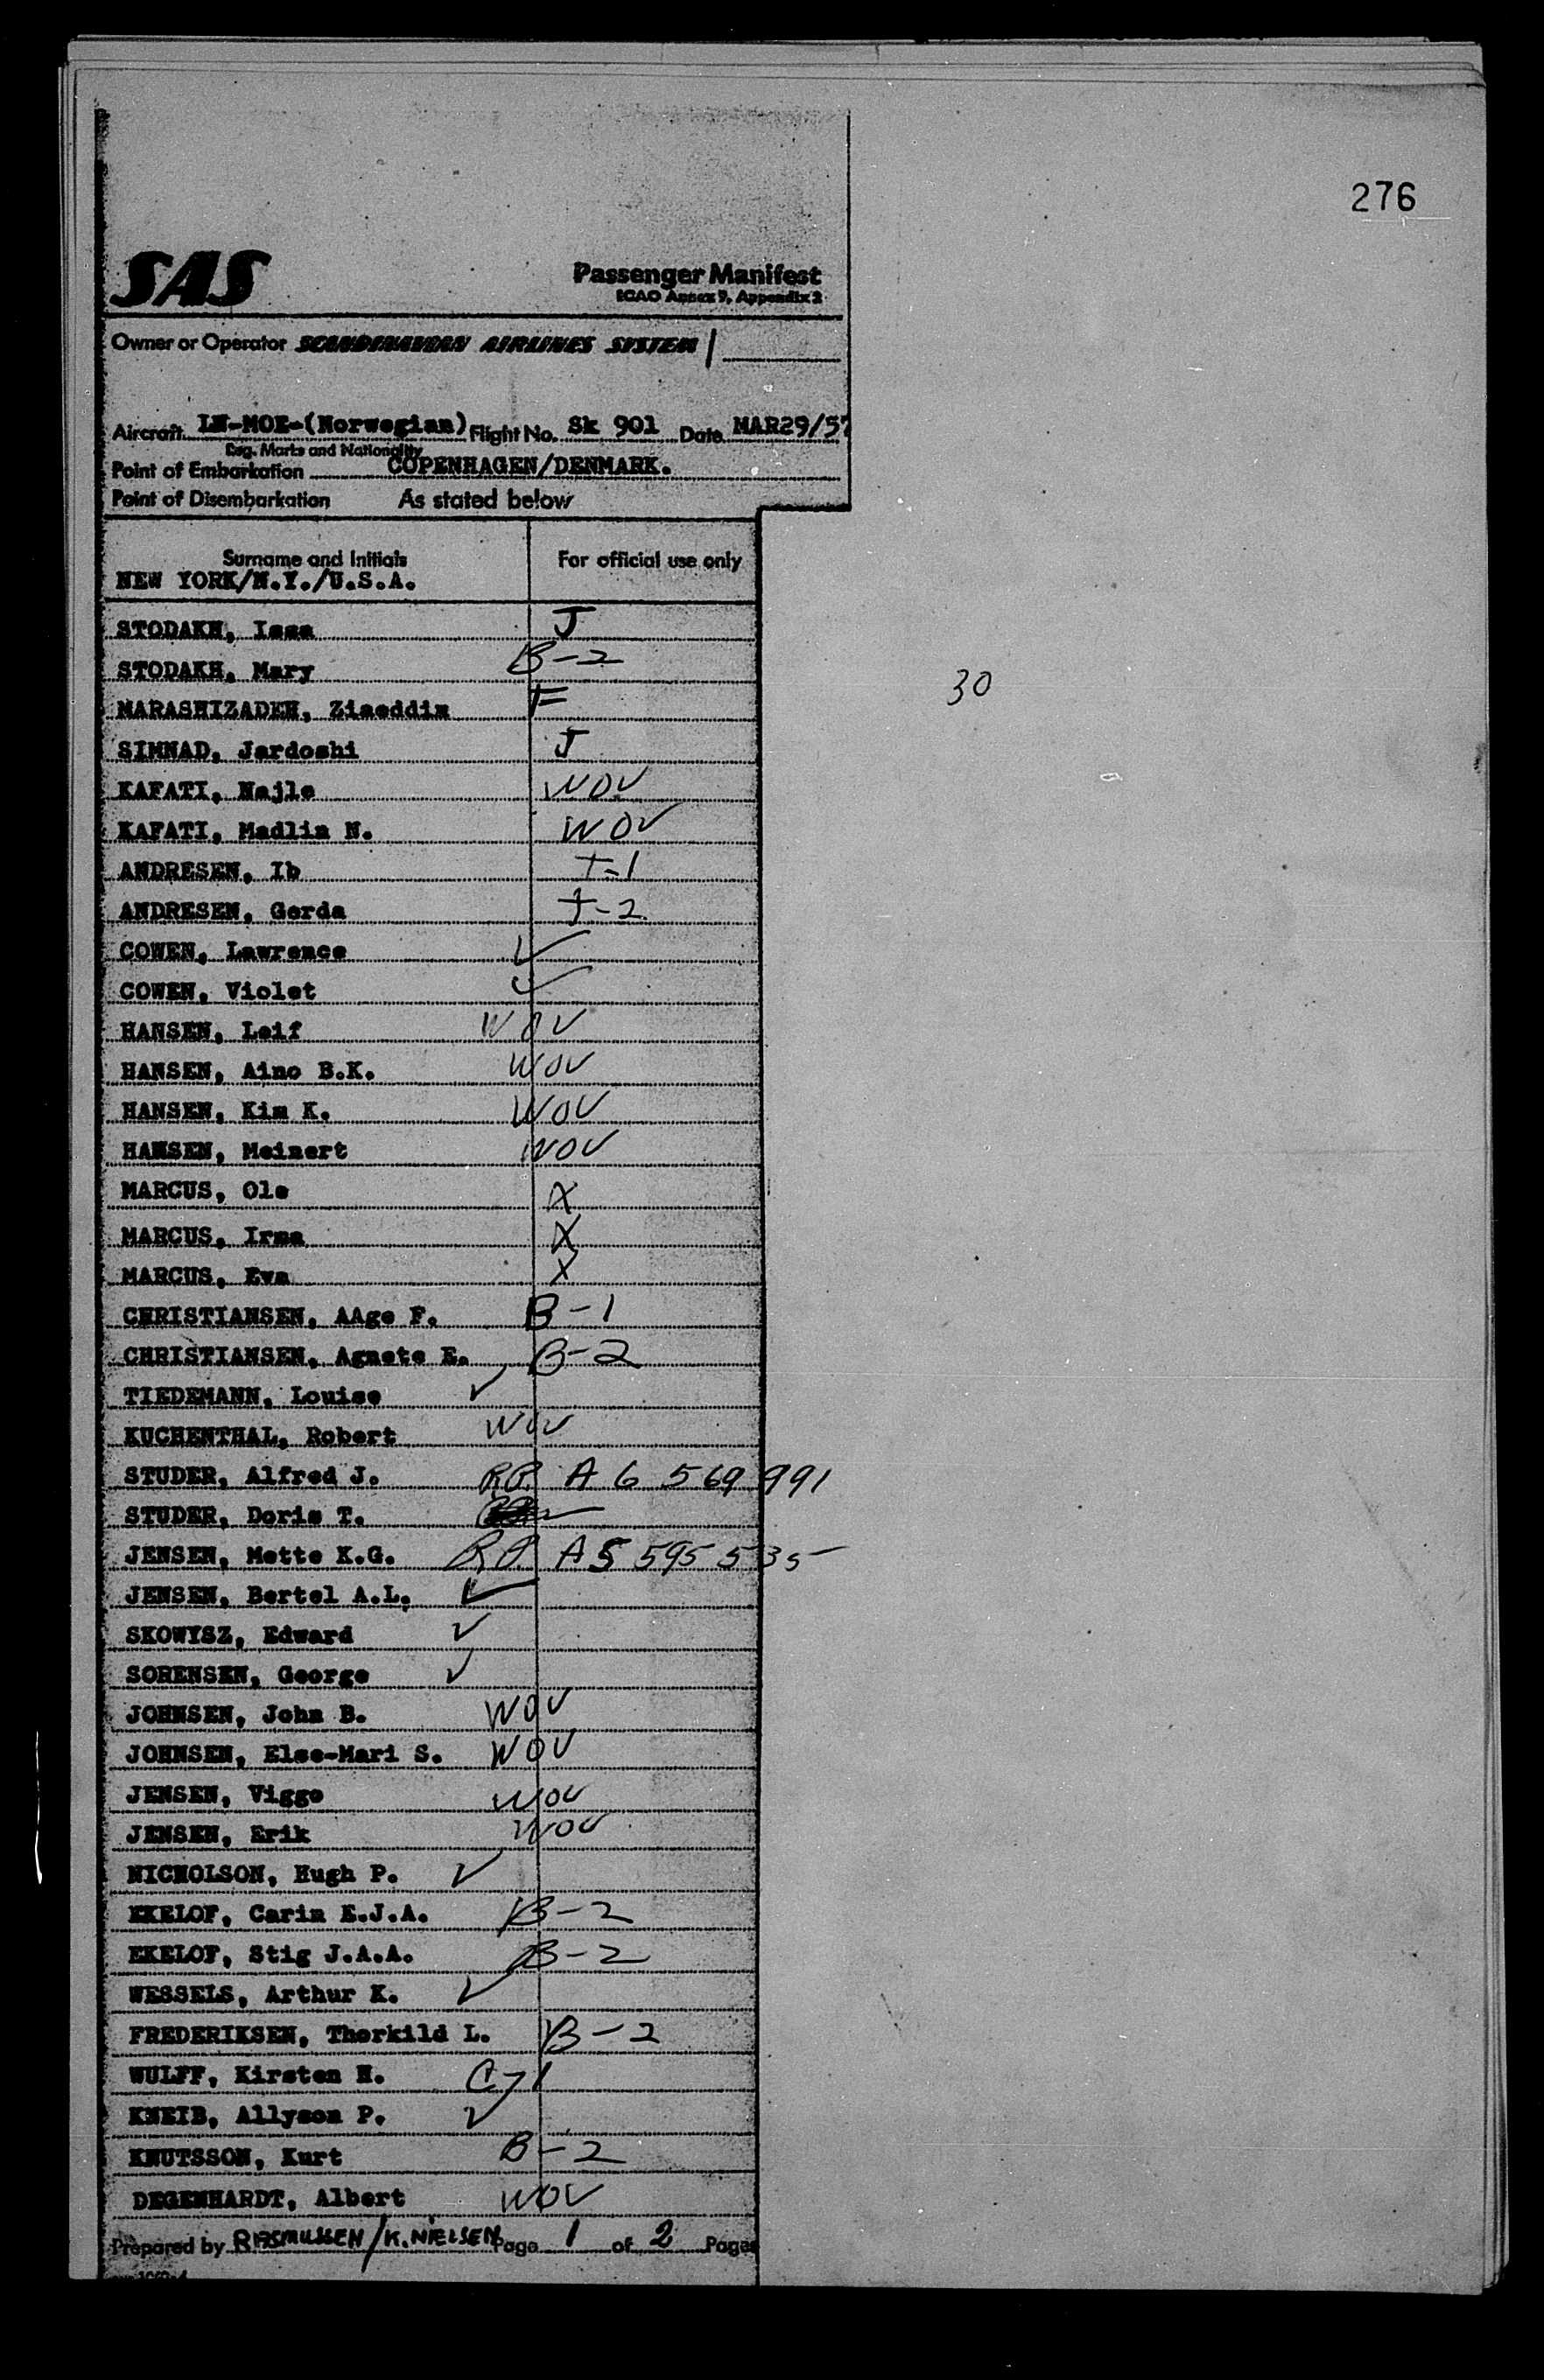 276
SAS
Passenger Manifest
ICAO Annex 9, Appendix 2
Owner or Operator SCANDINAVIAN AIRLINES SYSTEM
Aircraft LN-MOE-(Norwegian) Flight No. Sk 901 Date MAR29/57
Reg. Marks and Nationality
Point of Embarkation COPENHAGEN/DENMARK.
Point of Disembarkation As stated below
Surname and Initials For official use only
NEW YORK/N.Y./U.S.A.
STODAKH, Issa J
STODAKH, Mary B-2
30
MARASHIZADEH, Ziaeddin F
SIMNAD, Jardoshi J
KAFATI, Najle WOV
KAFATI, Madlin N. WOV
ANDRESEN, Ib T-1
ANDRESEN, Gerda T-2
COWEN, Lawrence ✓
COWEN, Violet ✓
HANSEN, Leif WOV
HANSEN, Aino B.K. WOV
HANSEN, Kim K. WOV
HANSEN, Meinert WOV
MARCUS, Ole X
MARCUS, Irma X
MARCUS, Eva X
CHRISTIANSEN, AAge F. B-1
CHRISTIANSEN, Agnete E. B-2
TIEDEMANN, Louise ✓
KUCHENTHAL, Robert WOV
STUDER, Alfred J. R.P. A 6 569 991
STUDER, Doris T.
JENSEN, Mette K.G. R.P. A5 595 535
JENSEN, Bertel A.L. ✓
SKOWYSZ, Edward ✓
SORENSEN, George ✓
JOHNSEN, John B. WOV
JOHNSEN, Else-Mari S. WOV
JENSEN, Viggo WOV
JENSEN, Erik WOV
NICHOLSON, Hugh P. ✓
EKELOF, Carin E.J.A. B-2
EKELOF, Stig J.A.A. B-2
WESSELS, Arthur K. ✓
FREDERIKSEN, Thorkild L. B-2
WULFF, Kirsten H. C-1
KNEIB, Allyson P. ✓
KNUTSSON, Kurt B-2
DEGENHARDT, Albert WOV
Prepared by RASMUSSEN/K.NIELSEN Page 1 of 2 Pages